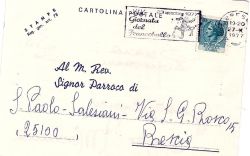 STAMPE
CARTOLINA POSTALE
Giornata
del
Francobollo
1977
Al M. Rev.
Signor Parroco di
S. Paolo - Salesiani - Via S. G. Bosco, 15
25100 Brescia